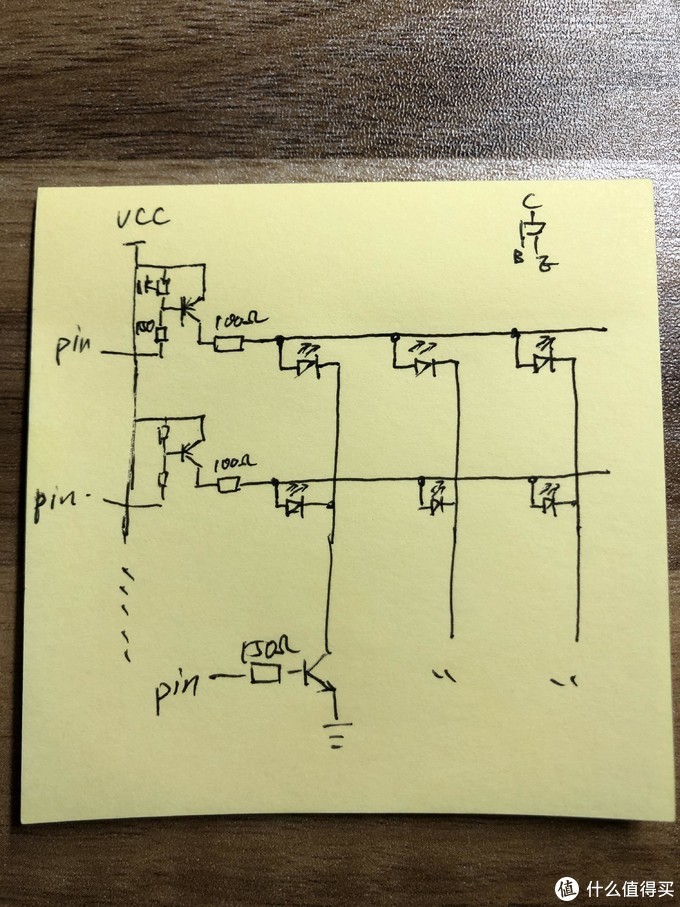 VCC
C
B E
1K
150
100Ω
pin
100Ω
pin
150Ω
pin
值 什么值得买